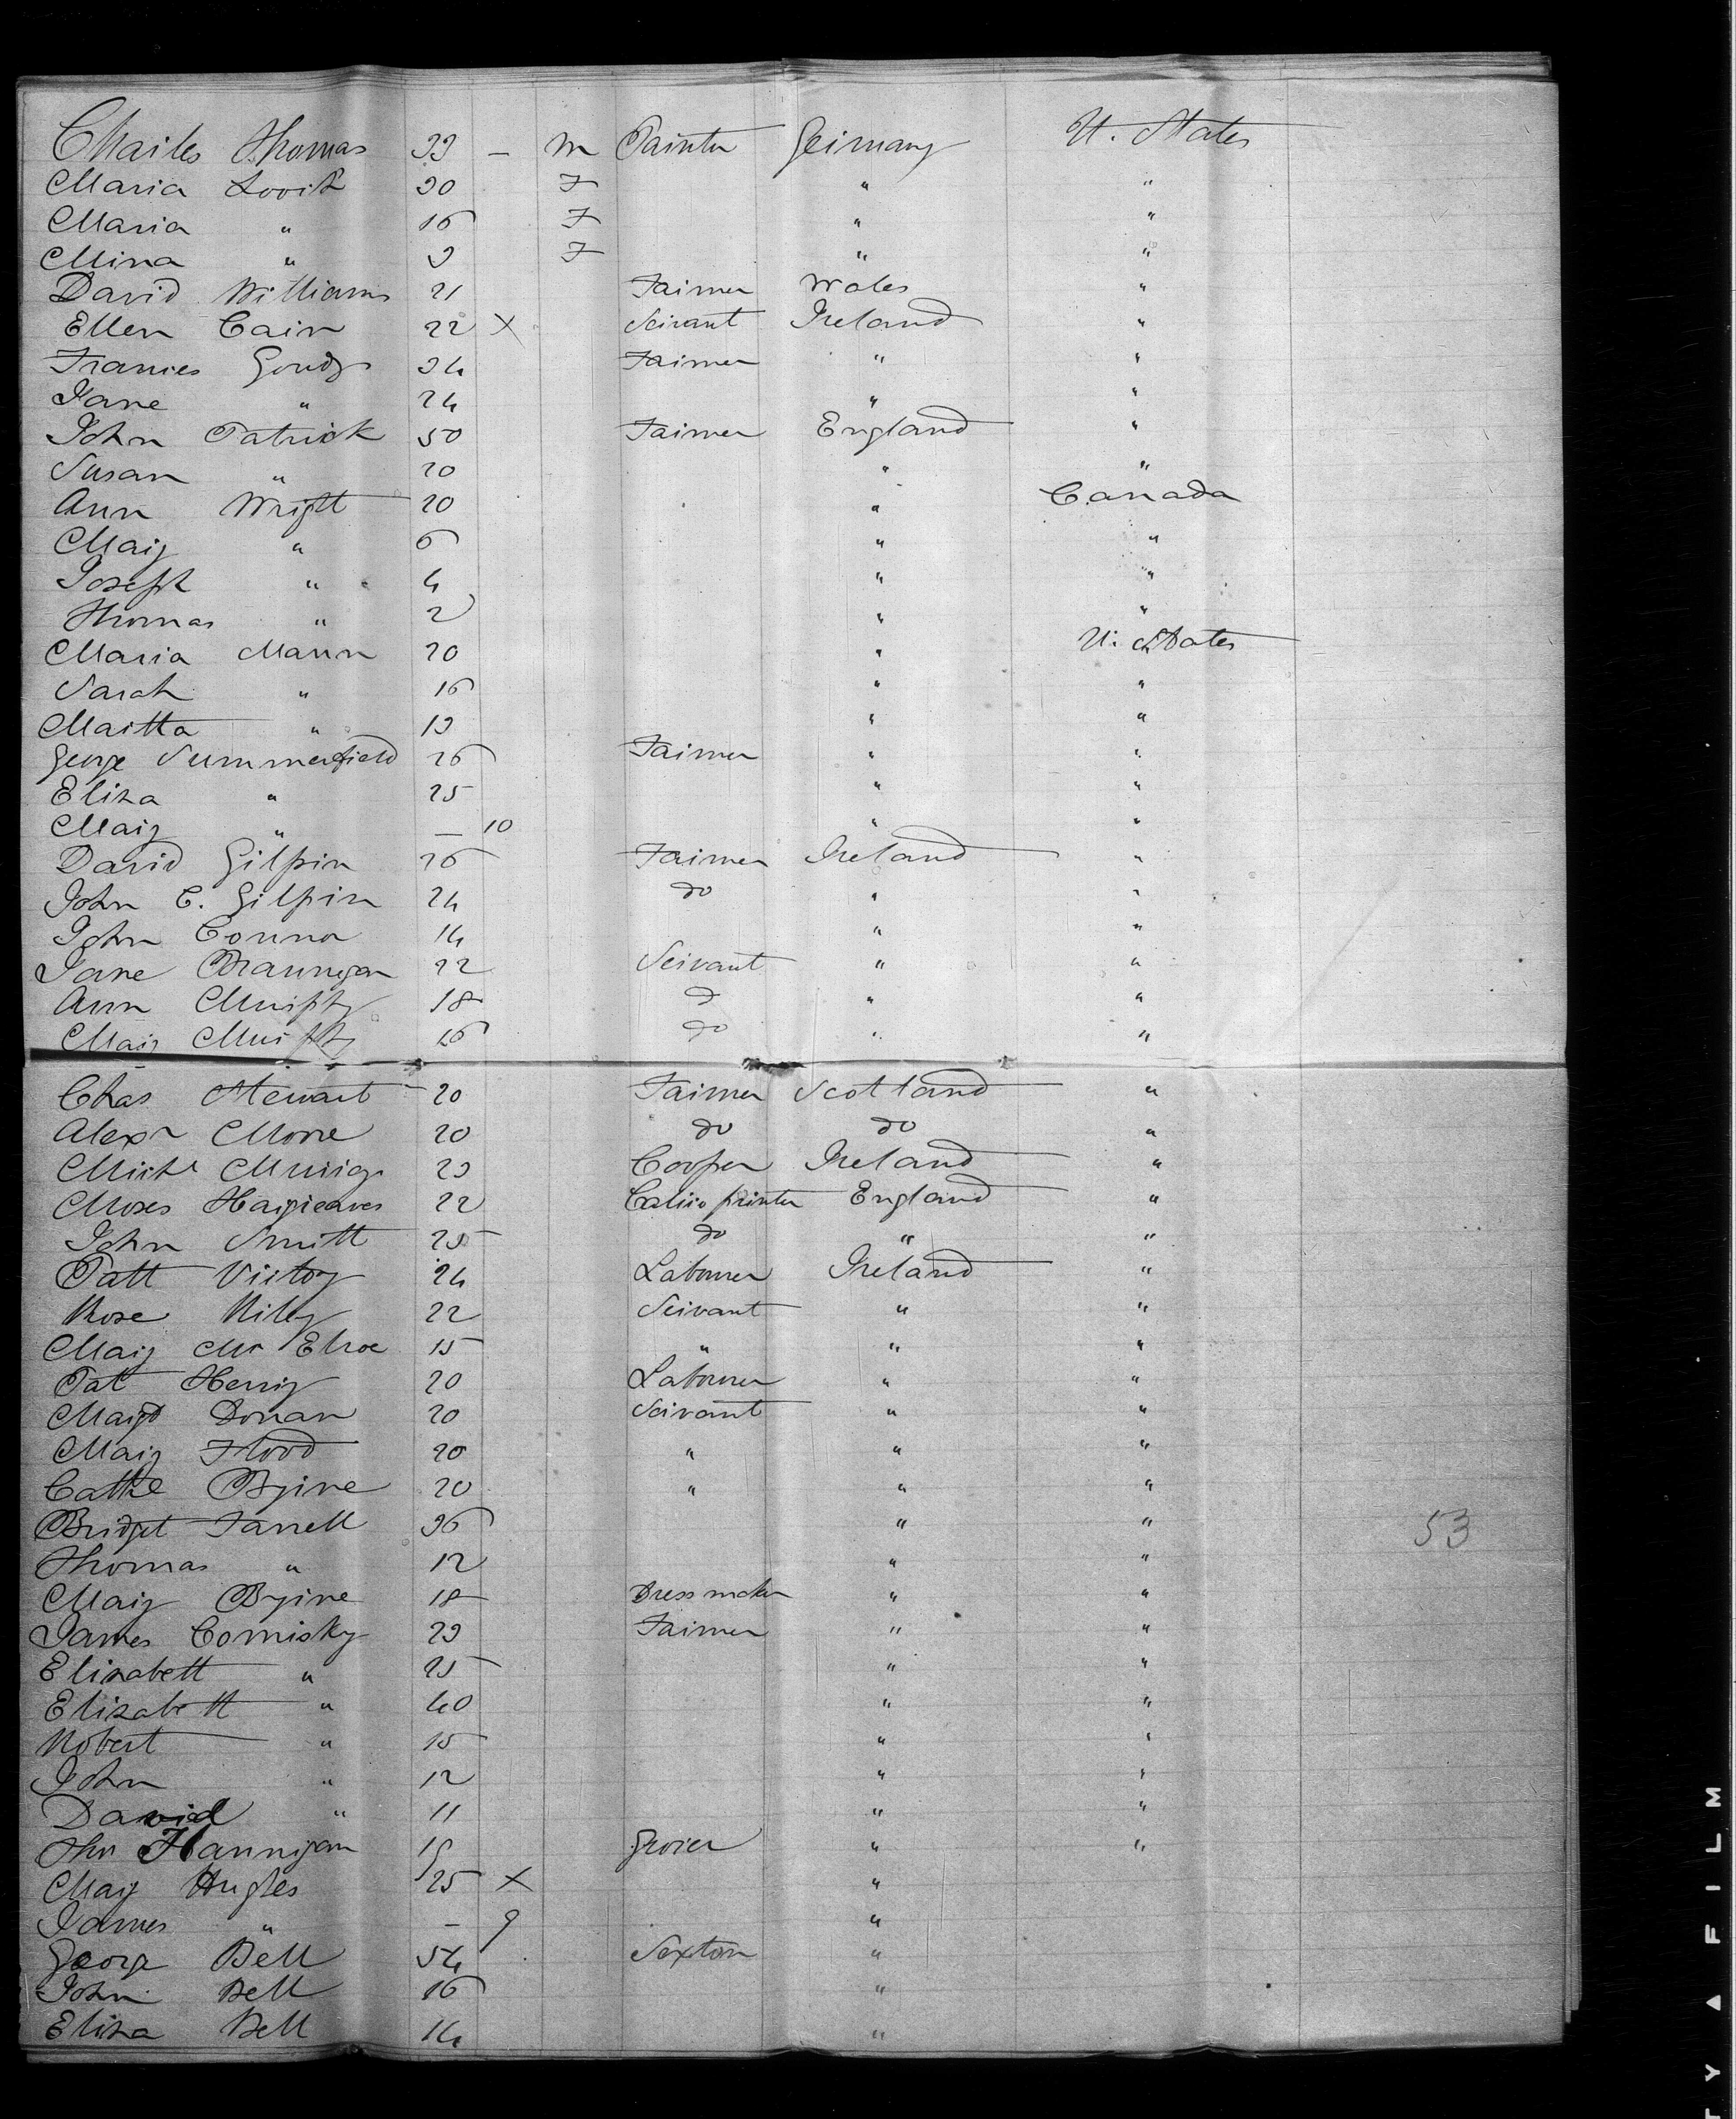 Charles Thomas 33 - M Painter Germany U. States
Maria Lovik 30 F " "
Maria " 16 F " "
Mina " 9 F " "
David Williams 21 Farmer Wales "
Ellen Cain 22 X Servant Ireland "
Frances Goudy 34 Farmer " "
Jane " 24 " "
John Patrick 50 Farmer England "
Susan " 20 " "
Ann Wright 20 " Canada
Mary " 6 " "
Joseph " 4 " "
Thomas " 2 " "
Maria Mann 20 " U. States
Sarah " 16 " "
Martha " 13 " "
George Summerfield 26 Farmer " "
Eliza " 25 " "
Mary " - 10 " "
David Gilpin 26 Farmer Ireland "
John C. Gilpin 24 do " "
John Connor 14 " "
Jane Brannigan 22 Servant " "
Ann Murphy 18 do " "
Mary Murphy 16 do " "
Chas Stewart 20 Farmer Scotland "
Alexr Morre 20 do do "
Michl 23 Cooper Ireland "
Moses Hargreaves 22 Calico printer England "
John Smith 25 do " "
Patt Victory 24 Labourer Ireland "
Rose Riley 22 Servant " "
Mary Mc Elroe 15 " " "
Pat Henry 20 Labourer " "
Margt Donan 20 Servant " "
Mary Flood 20 " " "
Cathe Byrne 20 " " "
Bridget Farrell 36 " "
Thomas " 12 " "
Mary Byrne 18 Dress maker " "
James Comisky 23 Farmer " "
Elizabeth " 25 " "
Elizabeth " 40 " "
Robert " 15 " "
John " 12 " "
David " 11 " "
Thos Hannigan 19 Grocer " "
Mary Hughes 25 X "
James " - 9 "
George Bell 54 Sexton "
John Bell 16 "
Eliza Bell 14 "
53
TY ▲ FILM